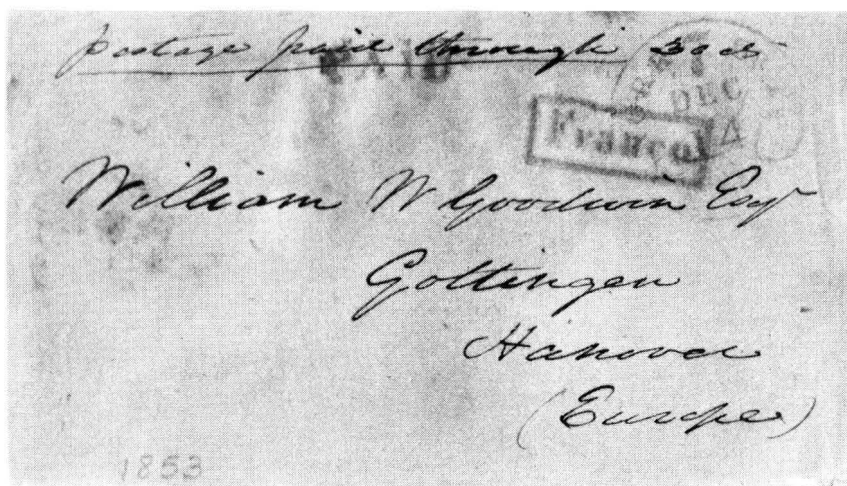 postage paid through 30 cts
PAID
DEC
Franco
William W Goodwin Esqr
Gottingen
Hanover
(Europe)
1853